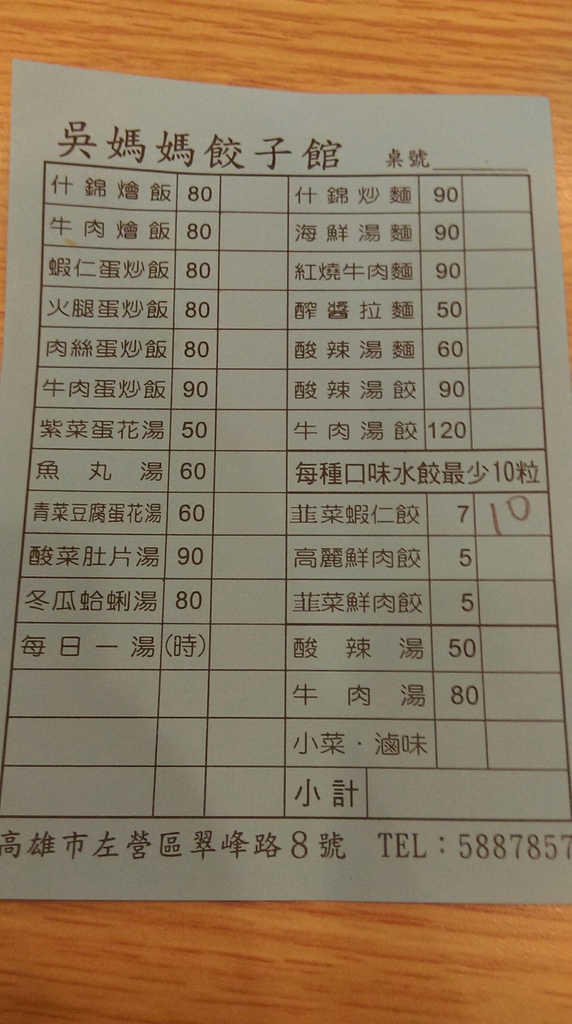 吳媽媽餃子館 桌號
什錦燴飯 80 什錦炒麵 90
牛肉燴飯 80 海鮮湯麵 90
蝦仁蛋炒飯 80 紅燒牛肉麵 90
火腿蛋炒飯 80 醡醬拉麵 50
肉絲蛋炒飯 80 酸辣湯麵 60
牛肉蛋炒飯 90 酸辣湯餃 90
紫菜蛋花湯 50 牛肉湯餃 120
魚丸湯 60 每種口味水餃最少10粒
青菜豆腐蛋花湯 60 韮菜蝦仁餃 7 10
酸菜肚片湯 90 高麗鮮肉餃 5
冬瓜蛤蜊湯 80 韮菜鮮肉餃 5
每日一湯 (時) 酸辣湯 50
牛肉湯 80
小菜·滷味
小計
高雄市左營區翠峰路8號 TEL:5887857